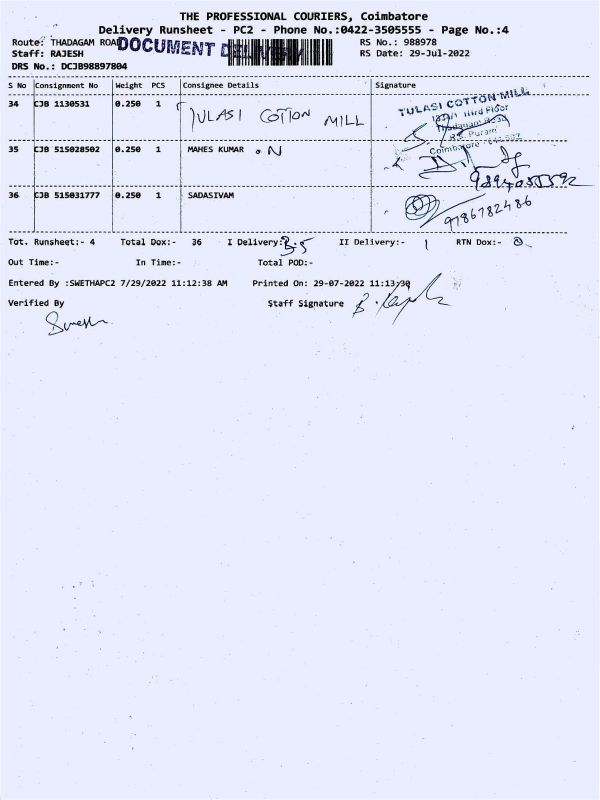 THE PROFESSIONAL COURIERS, Coimbatore
Delivery Runsheet - PC2 - Phone No.:0422-3505555 - Page No.:4
Route: THADAGAM ROAD DOCUMENT DELIVERY RS No.: 988978
Staff: RAJESH RS Date: 29-Jul-2022
DRS No.: DCJB98897804
S No Consignment No Weight PCS Consignee Details Signature
34 CJB 1130531 0.250 1 TULASI COTTON MILL
TULASI COTTON MILL
Third Floor
Thadagam Road
R.S. Puram
Coimbatore
35 CJB 515028502 0.250 1 MAHES KUMAR . N
36 CJB 515031777 0.250 1 SADASIVAM
9786782486
Tot. Runsheet:- 4 Total Dox:- 36 I Delivery: 35 II Delivery:- 1 RTN Dox:-
Out Time:- In Time:- Total POD:-
Entered By :SWETHAPC2 7/29/2022 11:12:38 AM Printed On: 29-07-2022 11:13:30
Verified By Staff Signature